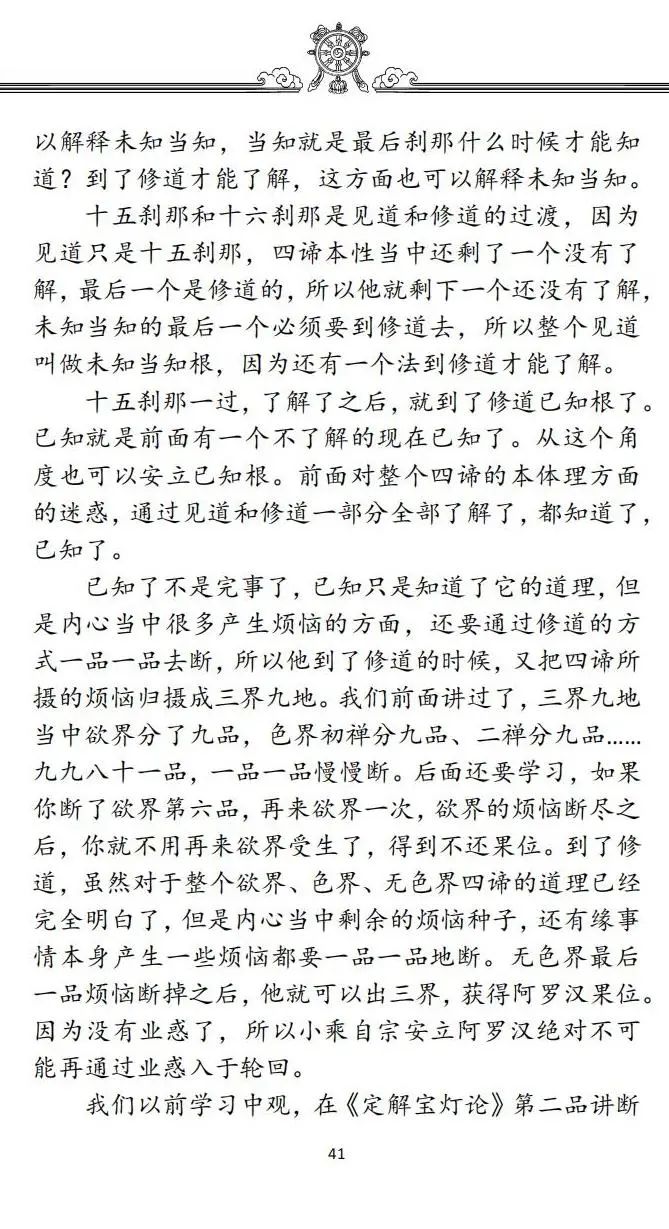 以解释未知当知，当知就是最后刹那什么时候才能知
道？到了修道才能了解，这方面也可以解释未知当知。
十五刹那和十六刹那是见道和修道的过渡，因为
见道只是十五刹那，四谛本性当中还剩了一个没有了
解，最后一个是修道的，所以他就剩下一个还没有了解，
未知当知的最后一个必须要到修道去，所以整个见道
叫做未知当知根，因为还有一个法到修道才能了解。
十五刹那一过，了解了之后，就到了修道已知根了。
已知就是前面有一个不了解的现在已知了。从这个角
度也可以安立已知根。前面对整个四谛的本体理方面
的迷惑，通过见道和修道一部分全部了解了，都知道了，
已知了。
已知了不是完事了，已知只是知道了它的道理，但
是内心当中很多产生烦恼的方面，还要通过修道的方
式一品一品去断，所以他到了修道的时候，又把四谛所
摄的烦恼归摄成三界九地。我们前面讲过了，三界九地
当中欲界分了九品，色界初禅分九品、二禅分九品……
九九八十一品，一品一品慢慢断。后面还要学习，如果
你断了欲界第六品，再来欲界一次，欲界的烦恼断尽之
后，你就不用再来欲界受生了，得到不还果位。到了修
道，虽然对于整个欲界、色界、无色界四谛的道理已经
完全明白了，但是内心当中剩余的烦恼种子，还有缘事
情本身产生一些烦恼都要一品一品地断。无色界最后
一品烦恼断掉之后，他就可以出三界，获得阿罗汉果位。
因为没有业惑了，所以小乘自宗安立阿罗汉绝对不可
能再通过业惑入于轮回。
我们以前学习中观，在《定解宝灯论》第二品讲断
41